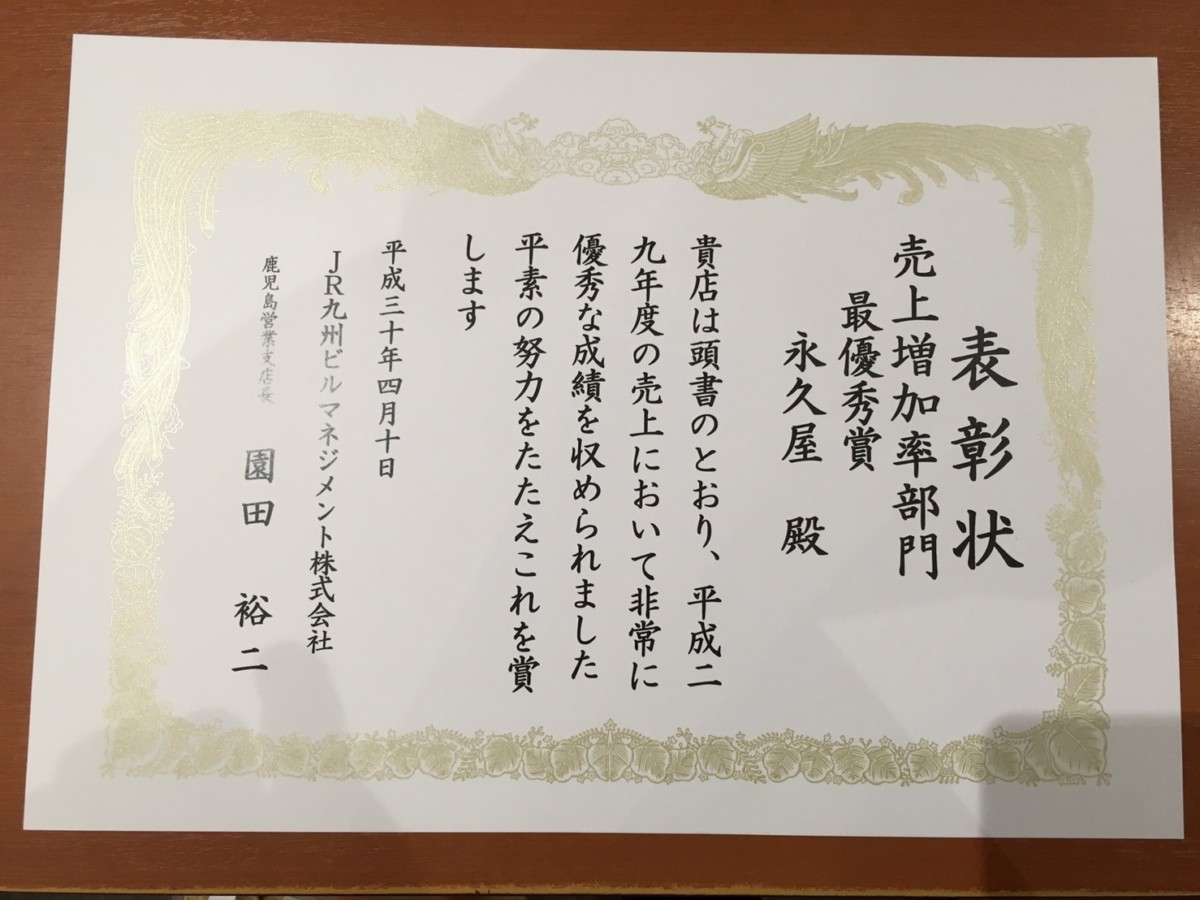 表彰状
売上増加率部門
最優秀賞
永久屋 殿
貴店は頭書のとおり、平成二
九年度の売上において非常に
優秀な成績を収められました
平素の努力をたたえこれを賞
します
平成三十年四月十日
JR九州ビルマネジメント株式会社
鹿児島営業支店長
園田 裕二